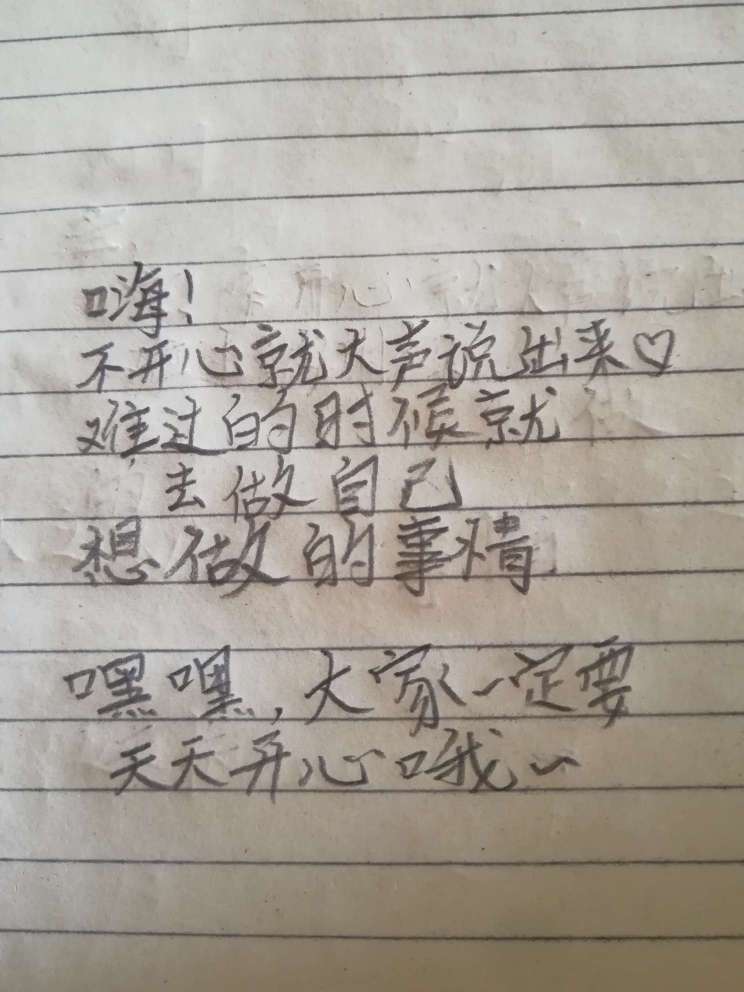 嗨!
不开心就大声说出来♡
难过的时候就
去做自己
想做的事情
嘿嘿,大家一定要
天天开心哦~